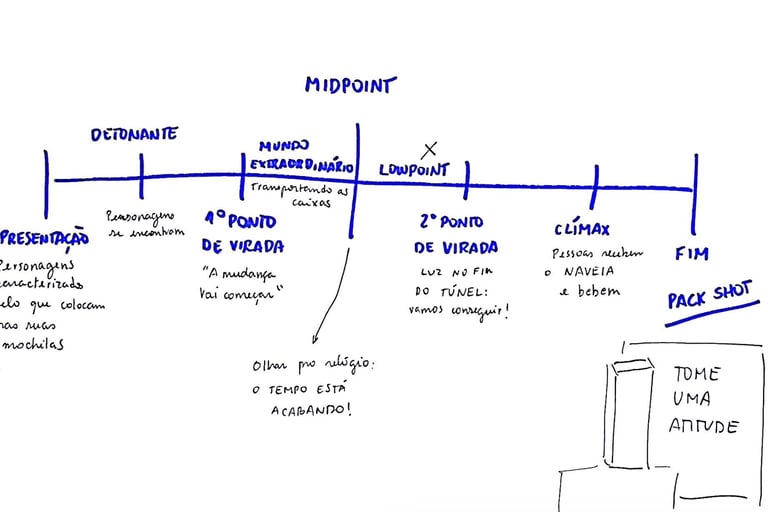 MIDPOINT
DETONANTE
MUNDO
EXTRAORDINÁRIO
Transportando as
caixas
LOWPOINT
X
Personagens
se encontram
PRESENTAÇÃO
Personagens
caracterizado
elo que colocam
nas suas
mochilas
1º PONTO
DE VIRADA
"A mudança
vai começar"
2º PONTO
DE VIRADA
LUZ NO FIM
DO TÚNEL:
vamos conseguir!
CLÍMAX
Pessoas recebem
o NAVEIA
e bebem
FIM
PACK SHOT
Olhar pro relógio:
O TEMPO ESTÁ
ACABANDO!
TOME
UMA
ATITUDE